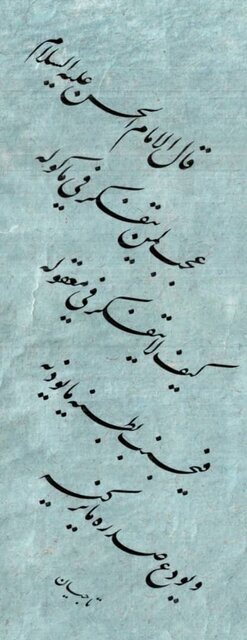 قال الامام الحسن علیه السلام
عجب لمن یتفکر فی مأکوله
کیف لا یتفکر فی معقوله
فیجنب بطنه ما یؤذیه
و یودع صدره ما یزکیه
تاجیان